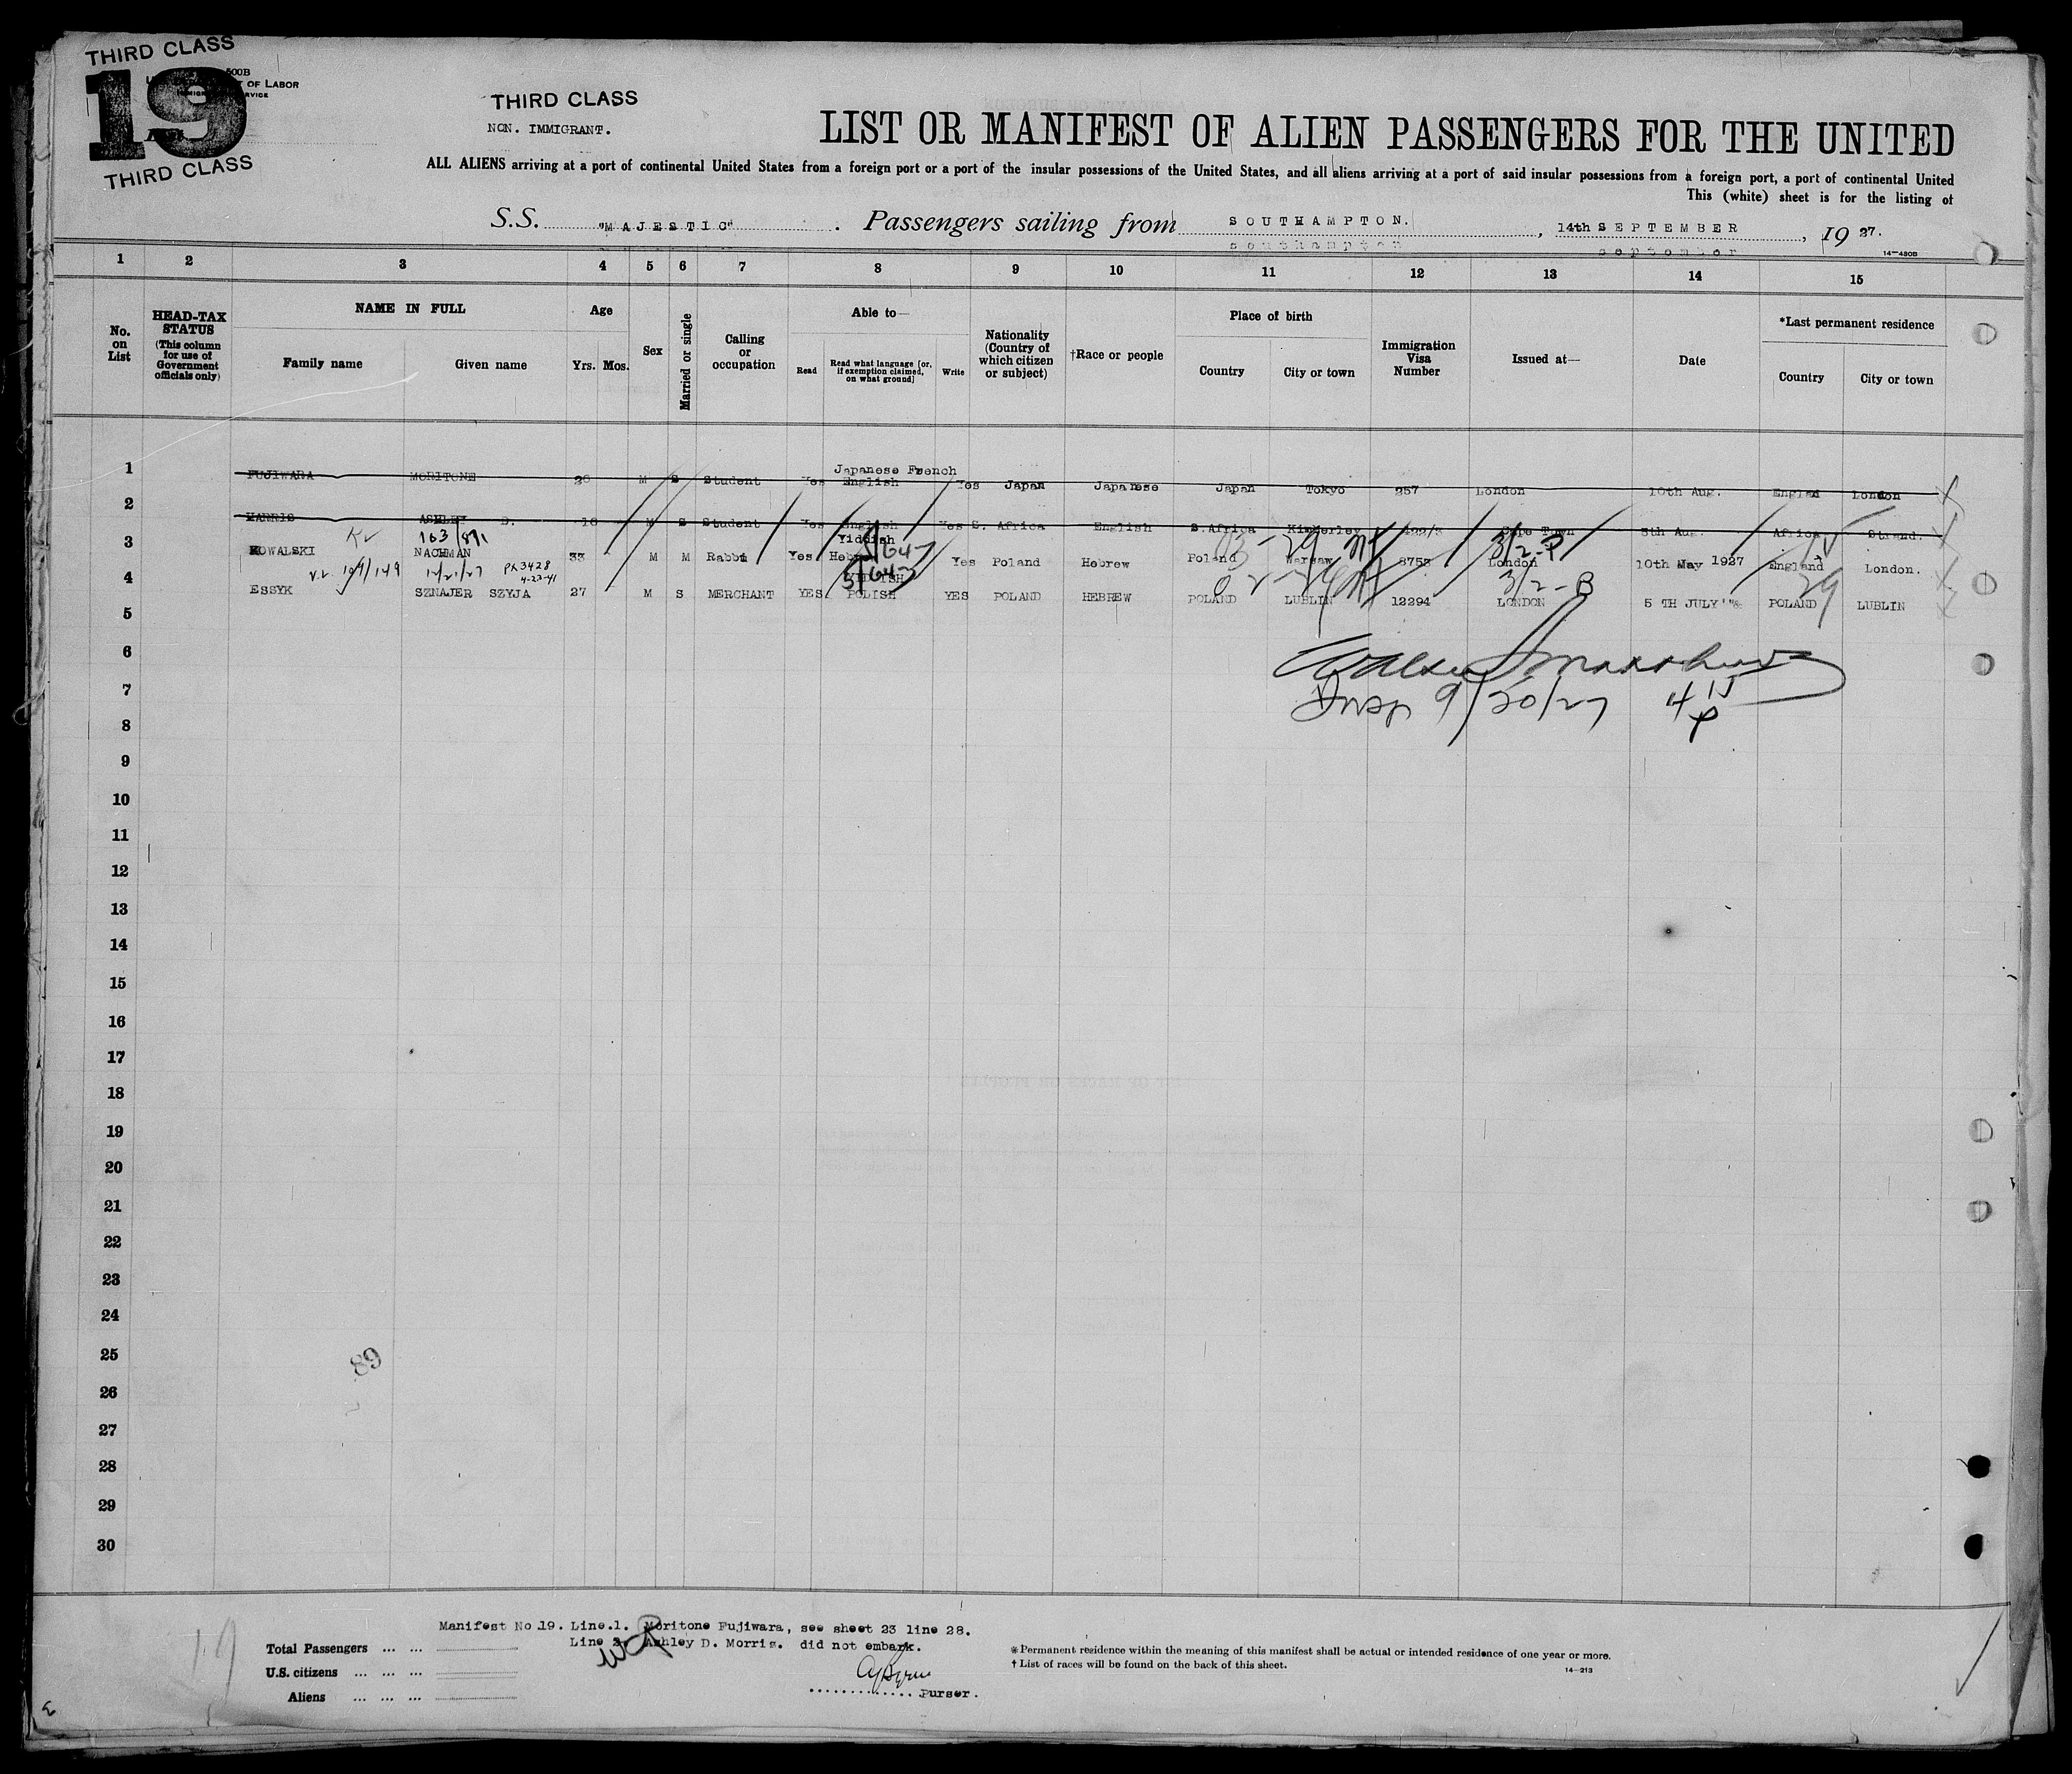 THIRD CLASS
19
500B
OF LABOR
THIRD CLASS
THIRD CLASS
NON. IMMIGRANT.
LIST OR MANIFEST OF ALIEN PASSENGERS FOR THE UNITED
ALL ALIENS arriving at a port of continental United States from a foreign port or a port of the insular possessions of the United States, and all aliens arriving at a port of said insular possessions from a foreign port, a port of continental United
This (white) sheet is for the listing of
S.S. "MAJESTIC" . Passengers sailing from SOUTHAMPTON. , 14th SEPTEMBER , 19 27.
southampton september 14—430B
1 2 3 4 5 6 7 8 9 10 11 12 13 14 15
No. on List
HEAD-TAX STATUS (This column for use of Government officials only)
NAME IN FULL
Family name Given name
Age
Yrs. Mos.
Sex
Married or single
Calling or occupation
Able to—
Read
Read what language [or, if exemption claimed, on what ground]
Write
Nationality (Country of which citizen or subject)
†Race or people
Place of birth
Country City or town
Immigration Visa Number
Issued at—
Date
*Last permanent residence
Country City or town
Japanese French
1 FUJIWARA MORITONE 26 M S Student Yes English Yes Japan Japanese Japan Tokyo 257 London 10th Aug. England London
2 ASHLEY D. 18 M S Student Yes English Yes S. Africa English S.Africa Kimberley Cape Town 8th Aug. Africa Strand.
163/891
Yiddish
3 KOWALSKI NACHMAN 33 M M Rabbi Yes Hebrew Yes Poland Hebrew Poland Warsaw 8758 London 10th May 1927 England London.
12/21/27 4-23-41
3/2-P
4 ESSYK SZNAJER SZYJA 27 M S MERCHANT YES POLISH YES POLAND HEBREW POLAND LUBLIN 12294 LONDON 5 TH JULY POLAND LUBLIN
3/2-B
5
6
7
Insp 9/20/27
8
9
10
11
12
13
14
15
16
17
18
19
20
21
22
23
24
25
89
26
27
28
29
30
Manifest No.19. Line.1. Moritone Fujiwara, see sheet 23 line 28.
Line 2. Ashley D. Morris. did not embark.
Total Passengers ... ...
U.S. citizens ... ... ...
Aliens ... ... ...
Purser.
* Permanent residence within the meaning of this manifest shall be actual or intended residence of one year or more.
† List of races will be found on the back of this sheet.
14—213
19